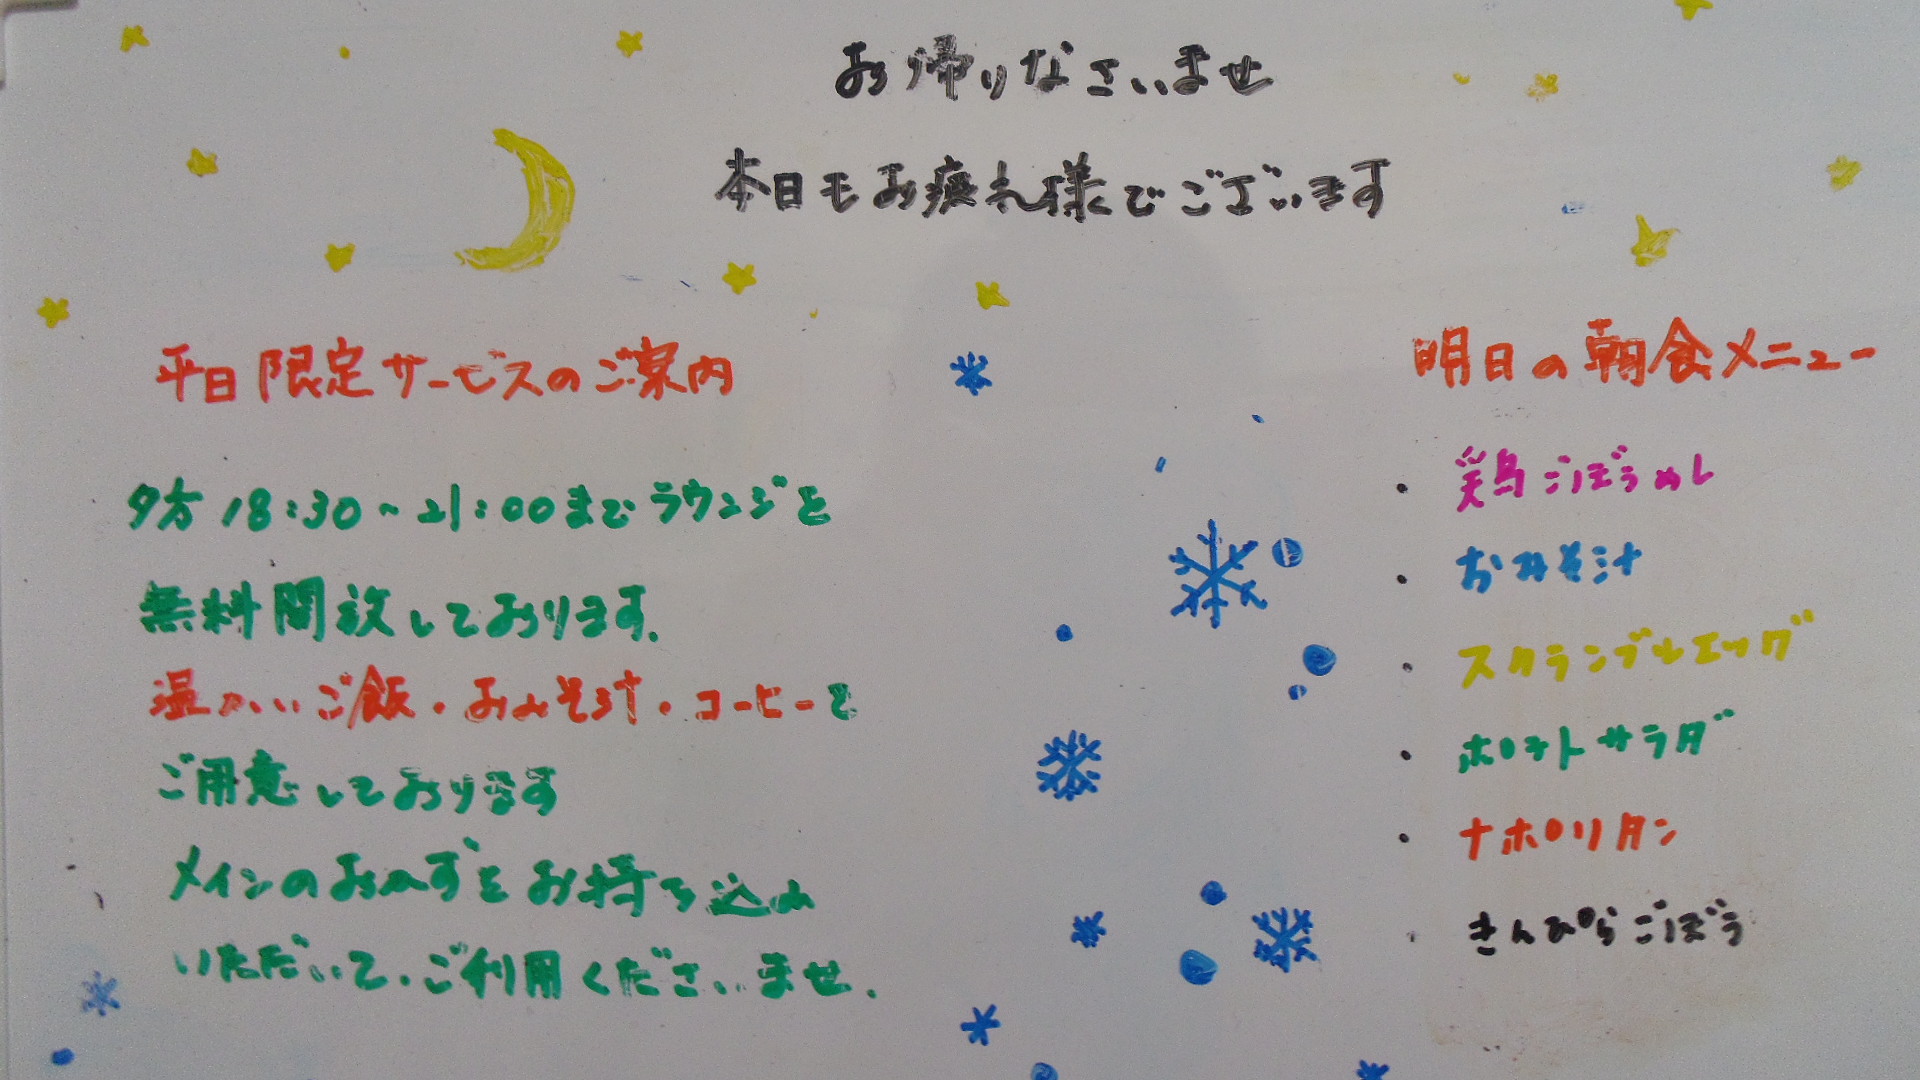 お帰りなさいませ
本日もお疲れ様でございます
平日限定サービスのご案内
夕方18:30~21:00までラウンジを
無料開放しております.
温かいご飯・おみそ汁・コーヒーを
ご用意しております
メインのおかずをお持ち込み
いただいて、ご利用くださいませ.
明日の朝食メニュー
・鶏ごぼうめし
・おみそ汁
・スクランブルエッグ
・ポテトサラダ
・ナポリタン
・きんぴらごぼう